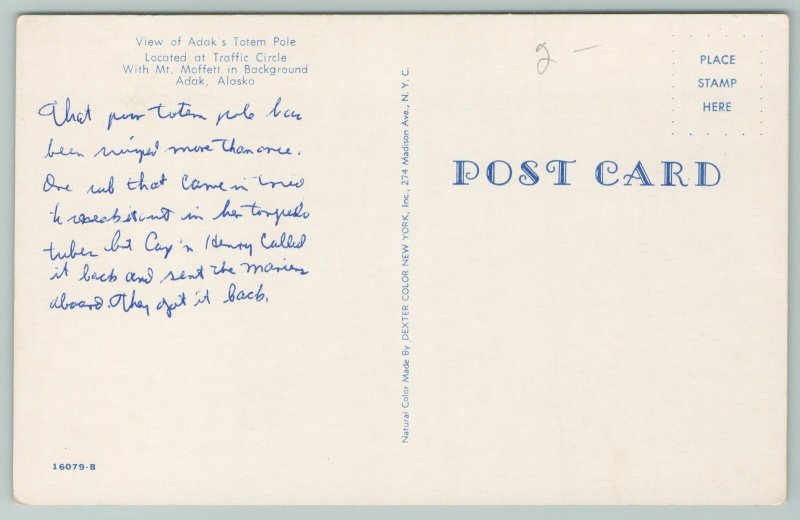 View of Adak's Totem Pole
Located at Traffic Circle
With Mt. Moffett in Background
Adak, Alaska
That poor totem pole has
been swiped more than once.
One sub that came in tried
to it in her torpedo
tubes but Cap'n Henry called
it back and sent the Marines
aboard. They got it back.
16079-B
Natural Color Made By DEXTER COLOR NEW YORK, Inc., 274 Madison Ave., N. Y. C.
2 -
PLACE
STAMP
HERE
POST CARD